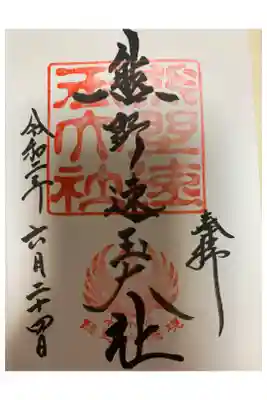 奉拝
熊野速玉大社
令和二年六月二十四日
熊野速
玉大社